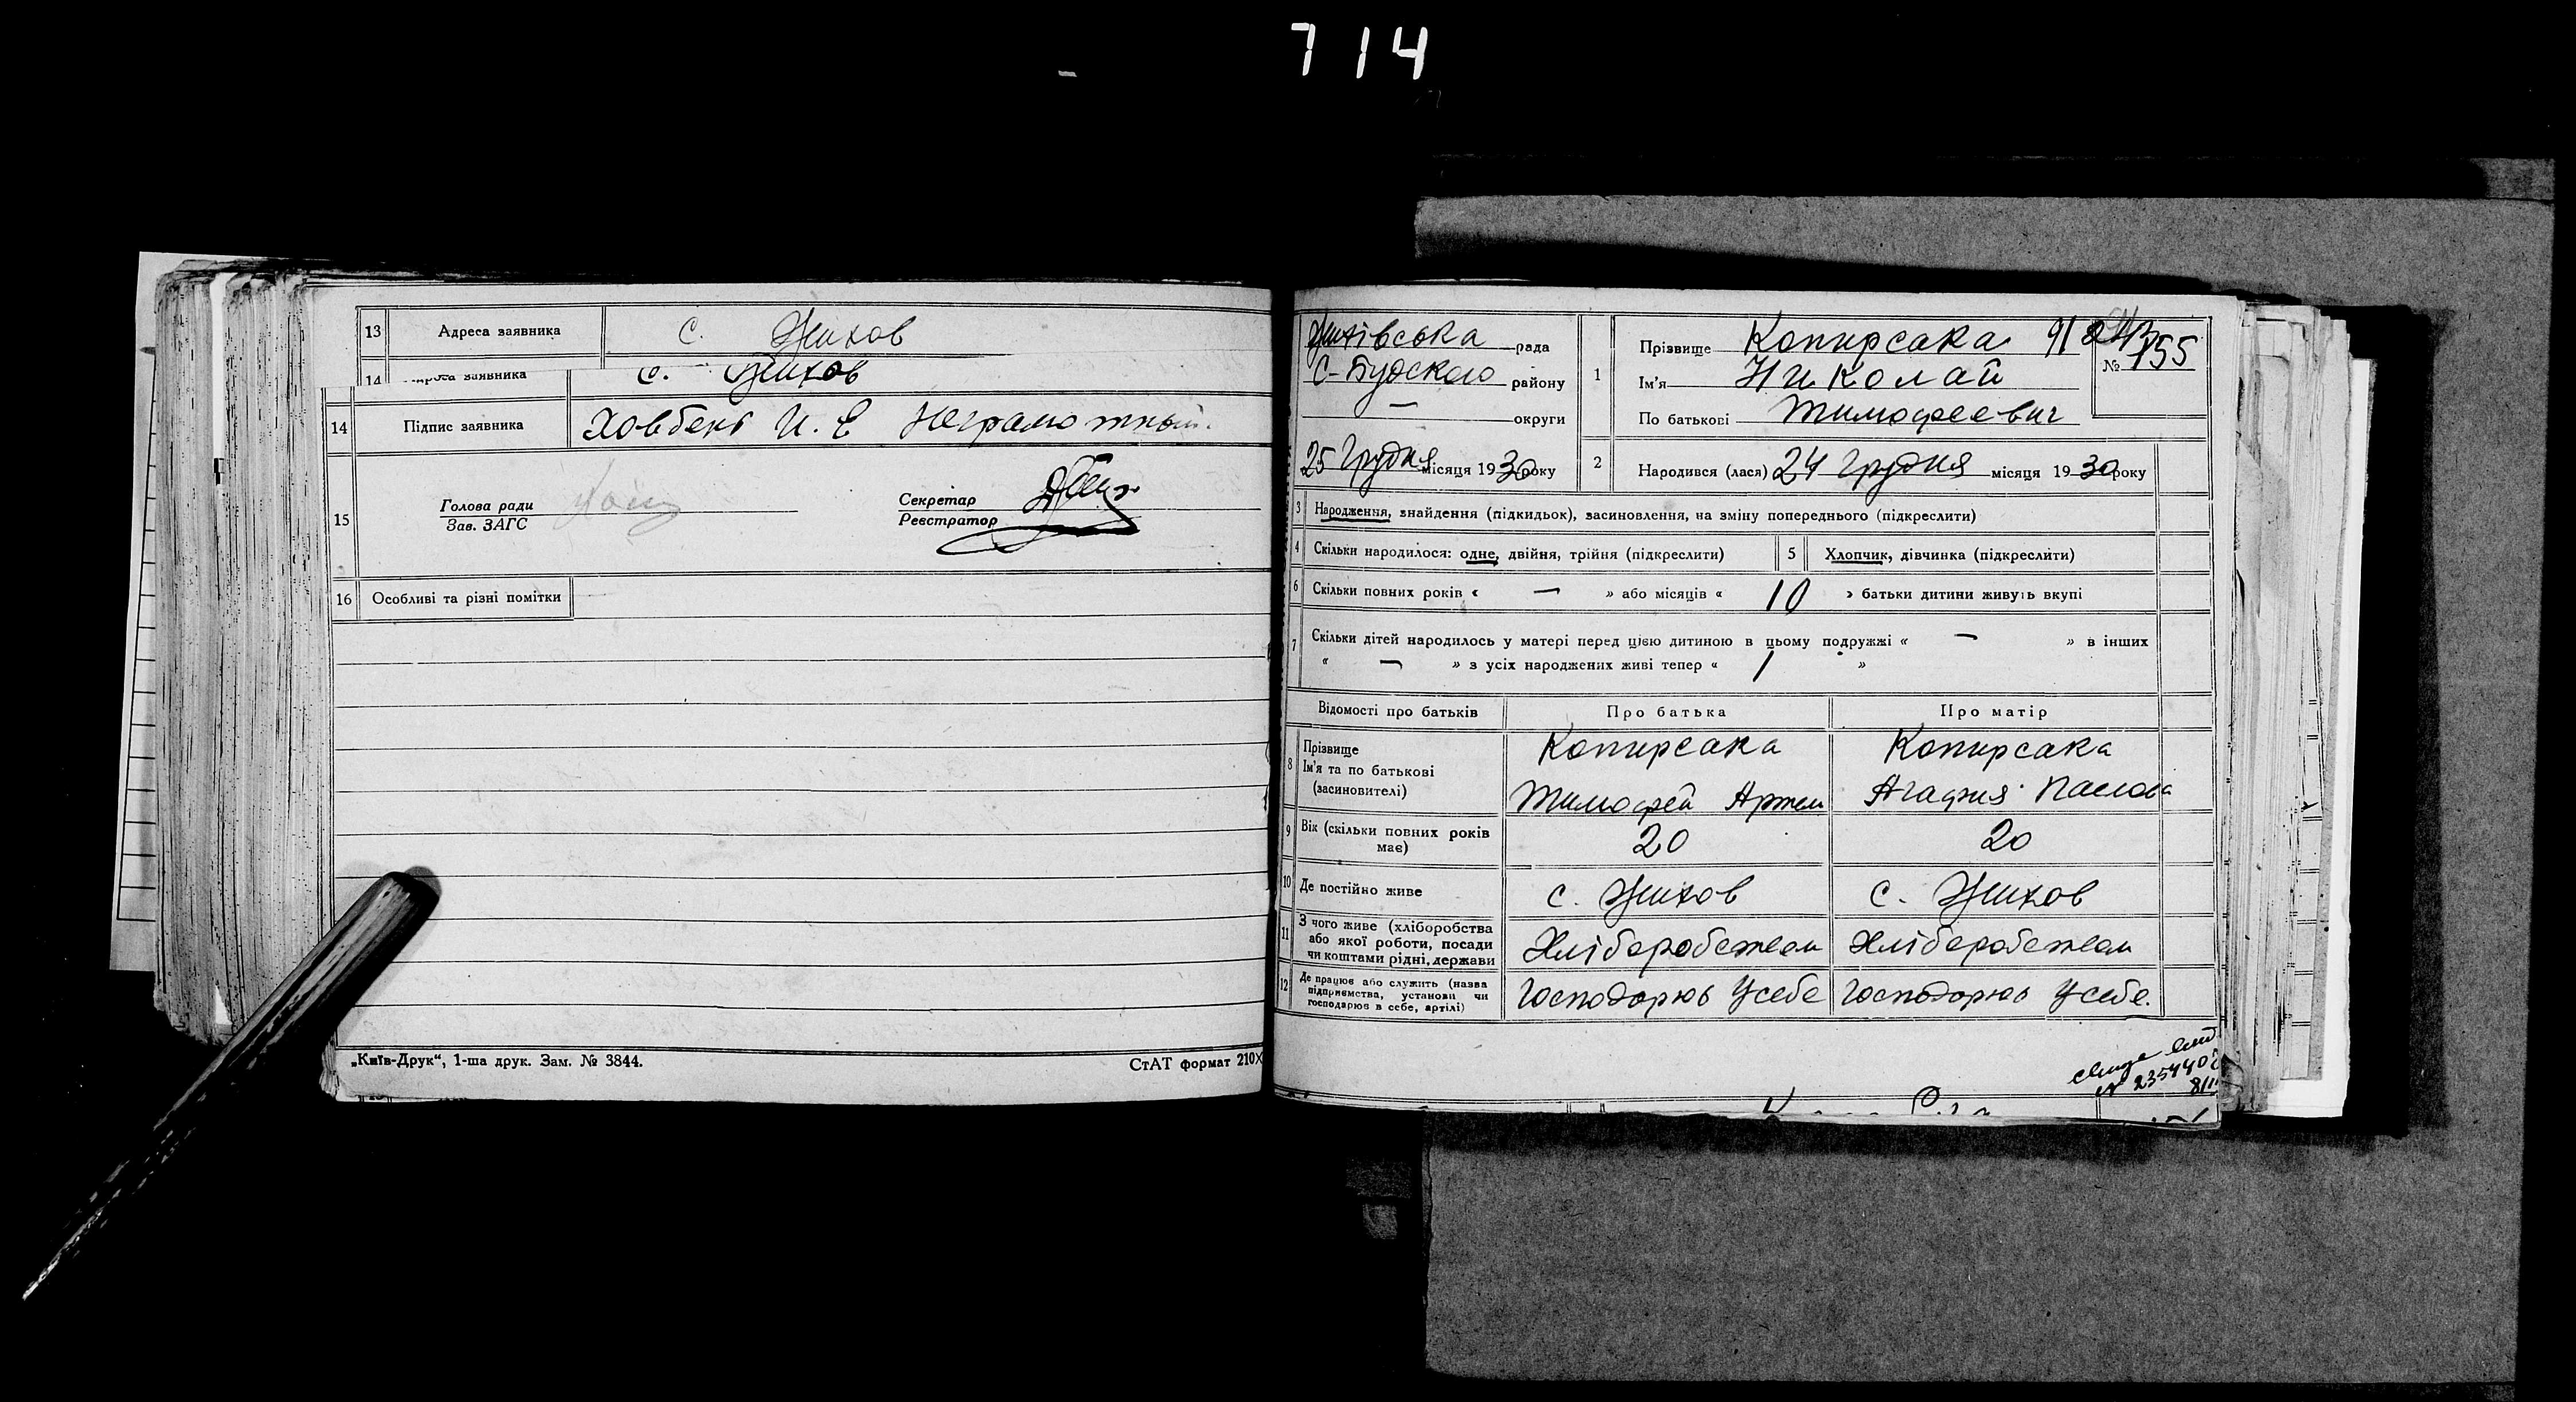 714
13 Адреса заявника с. Жихов
14 Адреса заявника с. Жихов
14 Підпис заявника Ховбект И. Е Неграмотный.
15 Голова ради
Зав. ЗАГС
Секретар
Реєстратор
16 Особливі та різні помітки
„Київ-Друк“, 1-ша друк. Зам. № 3844.
СтАТ формат 210X
Жихівська рада
С-Будского району
— округи
25 Грудня місяця 1930 року
1 Прізвище Копирсака
Ім'я Николай
По батькові Тимофеевич
№ 155
2 Народився (лася) 24 Грудня місяця 1930 року
3 Народження, знайдення (підкидьок), засиновлення, на зміну попереднього (підкреслити)
4 Скільки народилося: одне, двійня, трійня (підкреслити)
5 Хлопчик, дівчинка (підкреслити)
6 Скільки повних років « — » або місяців « 10 » батьки дитини живуть вкупі
7 Скільки дітей народилось у матері перед цією дитиною в цьому подружжі « — » в інших
« — » з усіх народжених живі тепер « 1 »
Відомості про батьків Про батька Про матір
8 Прізвище Копирсака Копирсака
Ім'я та по батькові
(засновителі) Тимофей Артем Агафия Павлова
9 Вік (скільки повних років має) 20 20
10 Де постійно живе с. Жихов с. Жихов
11 З чого живе (хліборобства
або якої роботи, посади
чи коштами рідні, держави Хліборобством Хліборобством
12 Де працює або служить (назва
підприємства, установи чи
господарює в себе, артілі) Господорює У себе Господорює У себе.